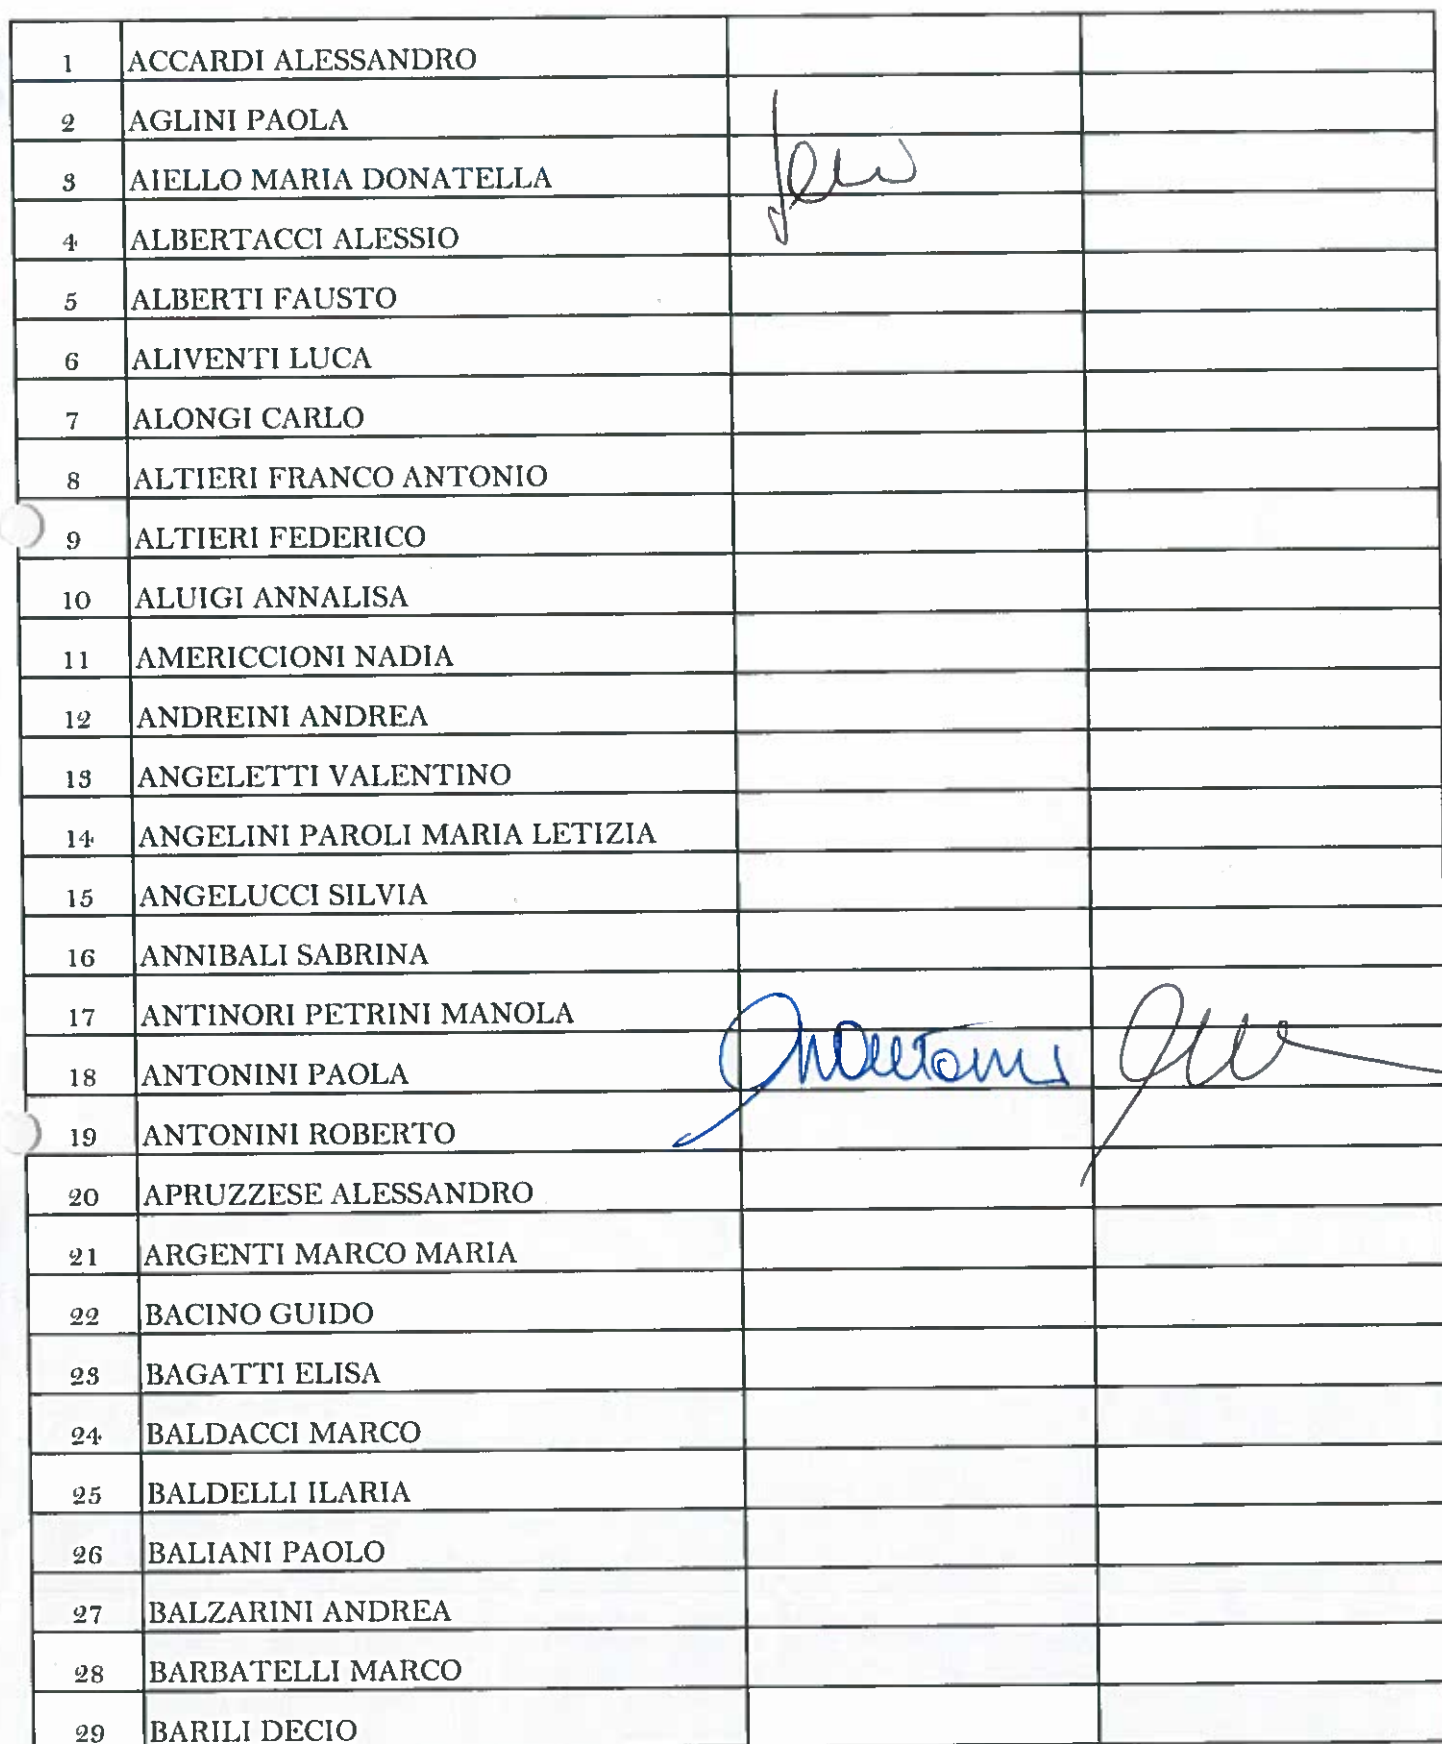 1 ACCARDI ALESSANDRO
2 AGLINI PAOLA
3 AIELLO MARIA DONATELLA
4 ALBERTACCI ALESSIO
5 ALBERTI FAUSTO
6 ALIVENTI LUCA
7 ALONGI CARLO
8 ALTIERI FRANCO ANTONIO
9 ALTIERI FEDERICO
10 ALUIGI ANNALISA
11 AMERICCIONI NADIA
12 ANDREINI ANDREA
13 ANGELETTI VALENTINO
14 ANGELINI PAROLI MARIA LETIZIA
15 ANGELUCCI SILVIA
16 ANNIBALI SABRINA
17 ANTINORI PETRINI MANOLA
18 ANTONINI PAOLA
19 ANTONINI ROBERTO
20 APRUZZESE ALESSANDRO
21 ARGENTI MARCO MARIA
22 BACINO GUIDO
23 BAGATTI ELISA
24 BALDACCI MARCO
25 BALDELLI ILARIA
26 BALIANI PAOLO
27 BALZARINI ANDREA
28 BARBATELLI MARCO
29 BARILI DECIO